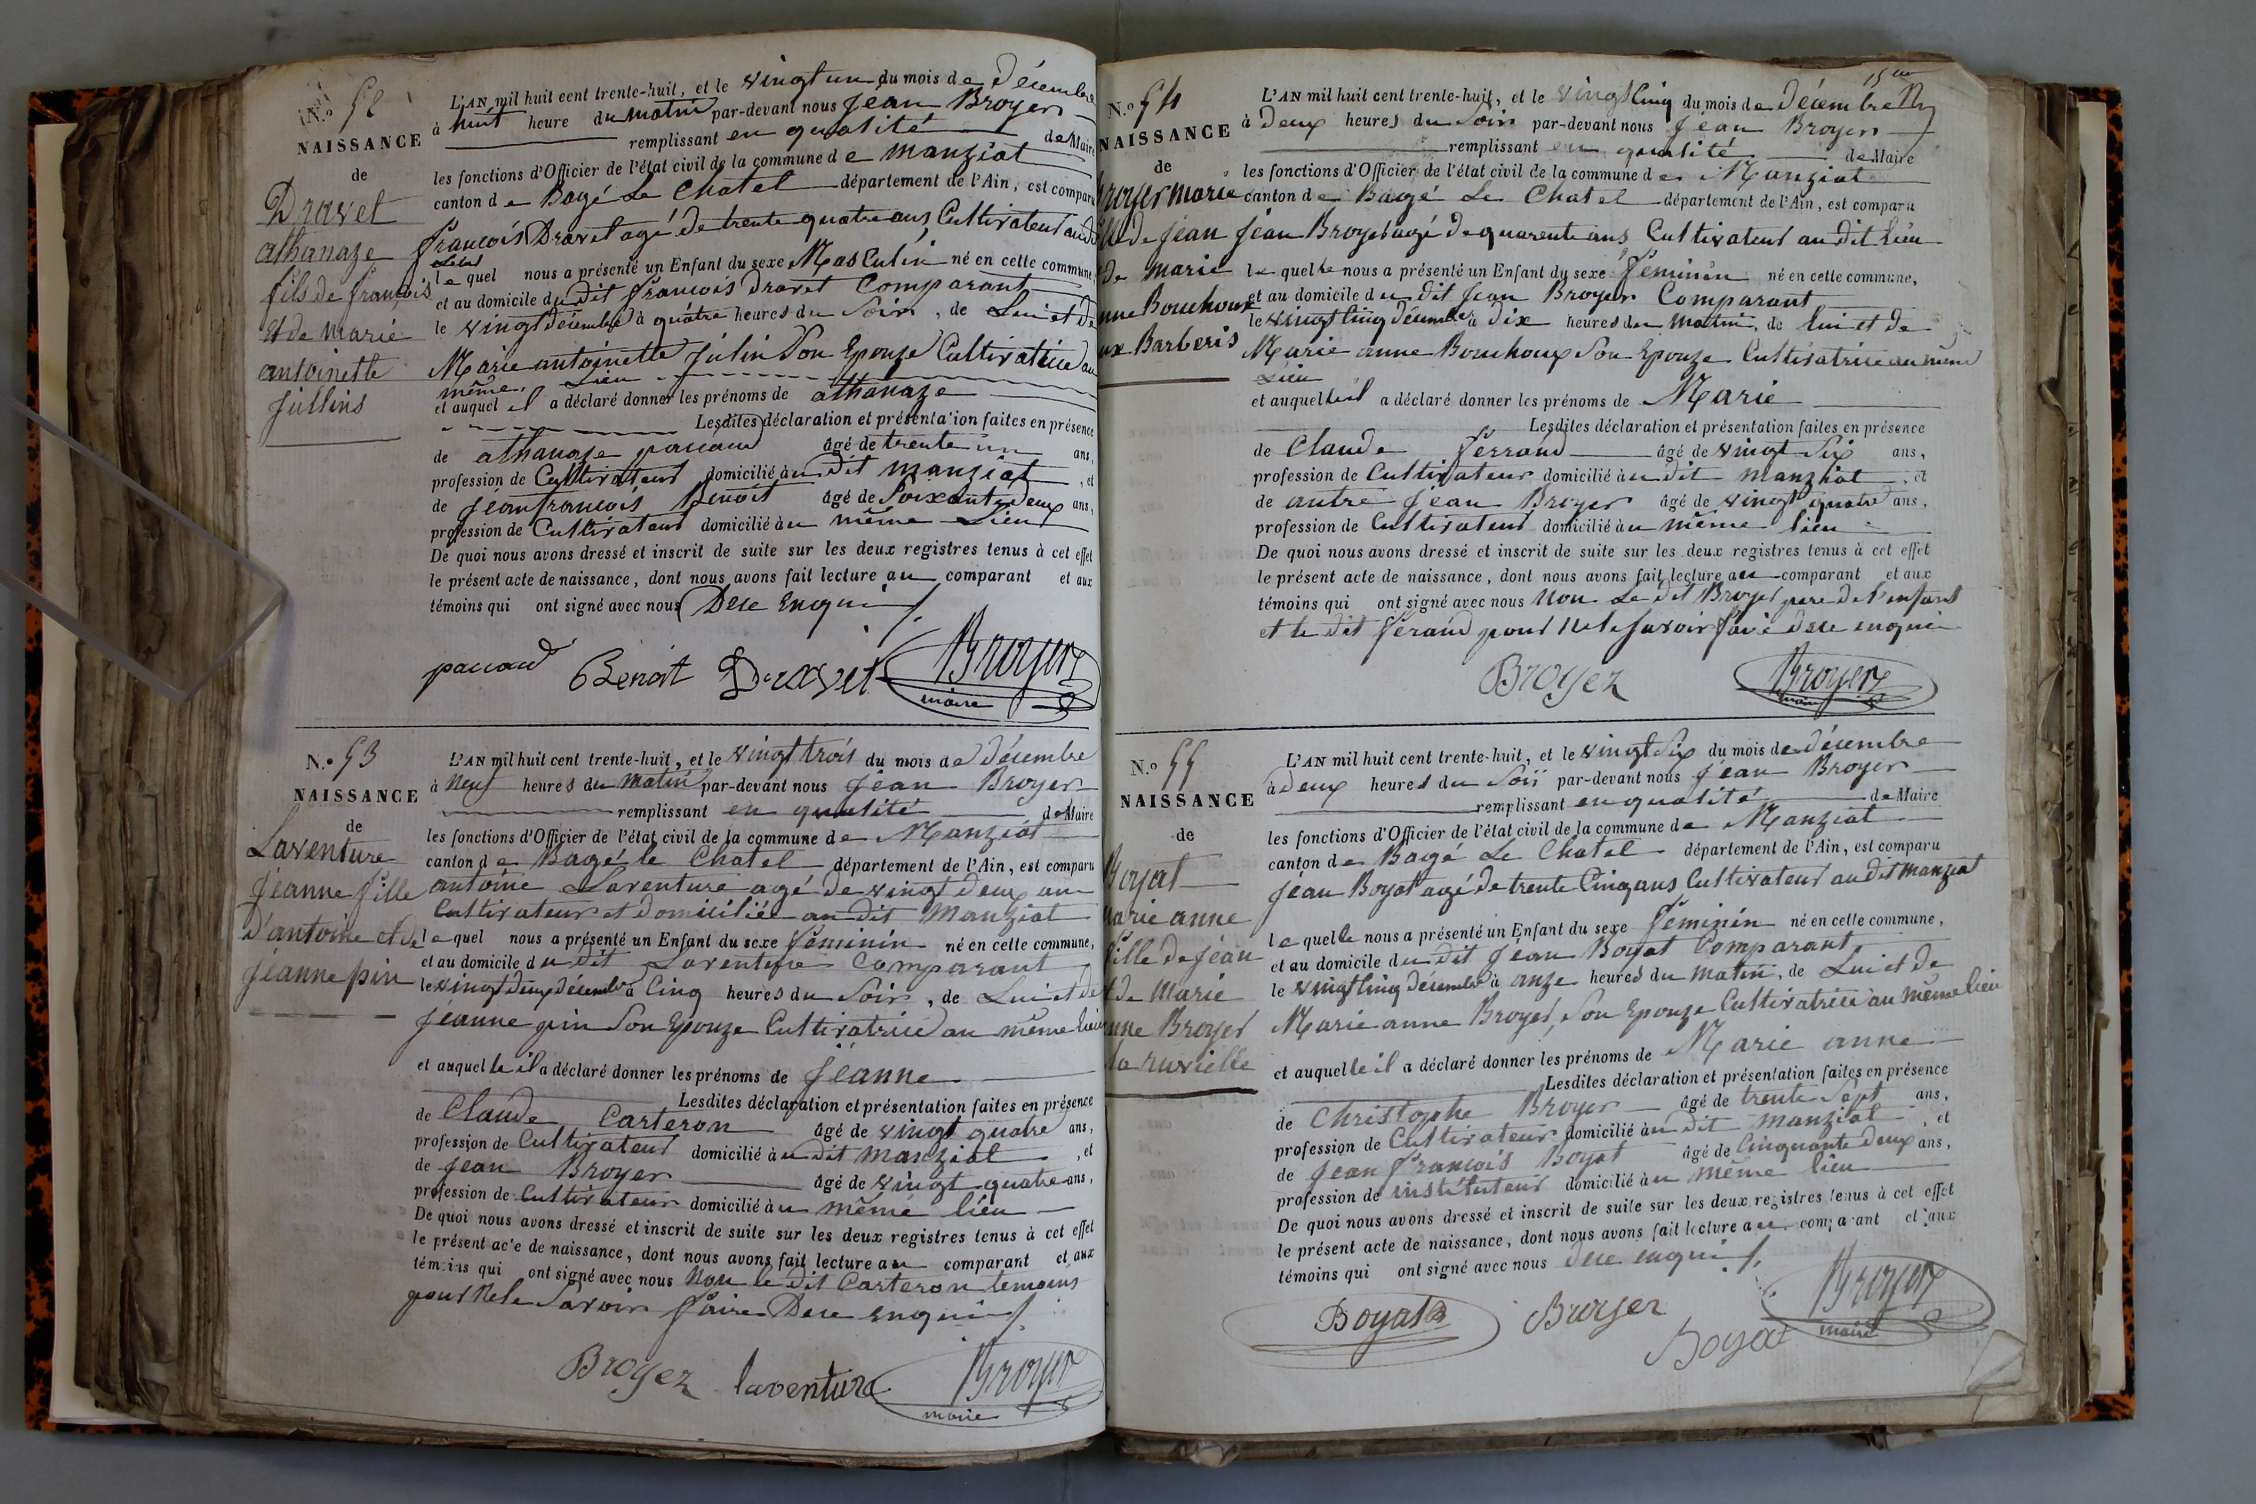 N.o 52
NAISSANCE
de
Dravet
athanaze
fils de françois
et de marie
antoinette
Jullins
L'AN mil huit cent trente-huit, et le vingt un du mois de Décembre
à huit heure du matin par-devant nous Jean Broyer
remplissant en qualité de Maire
les fonctions d'Officier de l'état civil de la commune de manziat
canton de Bagé Le Chatel département de l'Ain, est comparu
françois Dravet agé de trente quatre ans, Cultivateur audit
Lieu
le quel nous a présenté un Enfant du sexe Masculin né en cette commune
et au domicile du dit françois dravet Comparant
le vingt décembre à quatre heures du Soir, de Lui et de
Marie antoinette Julin Son Epouze Cultivatrice au
même Lieu
et auquel il a déclaré donner les prénoms de athanaze
Lesdites déclaration et présentation faites en présence
de athanaze pacaud âgé de trente un ans,
profession de Cultivateur domicilié au dit manziat, et
de Jean françois Benoit âgé de Soixante deux ans,
profession de Cultivateur domicilié au même Lieu
De quoi nous avons dressé et inscrit de suite sur les deux registres tenus à cet effet
le présent acte de naissance, dont nous avons fait lecture au comparant et aux
témoins qui ont signé avec nous Dece enquis
pacaud Benoit Dravet Broyer
maire
N.o 53
NAISSANCE
de
Laventure
Jeanne fille
d'antoine et de
Jeanne pin
L'AN mil huit cent trente-huit, et le vingt trois du mois de décembre
à Neuf heures du matin par-devant nous Jean Broyer
remplissant en qualité de Maire
les fonctions d'Officier de l'état civil de la commune de Manziat
canton de Bagé le Chatel département de l'Ain, est comparu
antoine Laventure agé de vingt deux an
Cultivateur et domicilié au dit Manziat
le quel nous a présenté un Enfant du sexe féminin né en cette commune,
et au domicile du dit Laventure Comparant
le vingt deux décembre à Cinq heures du Soir, de Lui et de
Jeanne pin Son Epouze Cultivatrice au même lieu
et auquelle il a déclaré donner les prénoms de Jeanne
Lesdites déclaration et présentation faites en présence
de Claude Carteron âgé de vingt quatre ans,
profession de Cultivateur domicilié au dit manziat, et
de Jean Broyer âgé de vingt quatre ans,
profession de Cultivateur domicilié au même lieu
De quoi nous avons dressé et inscrit de suite sur les deux registres tenus à cet effet
le présent acte de naissance, dont nous avons fait lecture au comparant et aux
témoins qui ont signé avec nous Non le dit Carteron temoins
pour Ne le Savoir faire Dece enquis
Broyer laventure Broyer
maire
15me
N.o 54
NAISSANCE
de
Broyer marie
fille de Jean
et de marie
anne Bouchoux
aux Barberis
L'AN mil huit cent trente-huit, et le vingt Cinq du mois de décembre
à Deux heures du Soir par-devant nous Jean Broyer
remplissant en qualité de Maire
les fonctions d'Officier de l'état civil de la commune de Manziat
canton de Bagé Le Chatel département de l'Ain, est comparu
Jean Broyer agé de quarente ans Cultivateur au dit lieu
le quelle nous a présenté un Enfant du sexe féminin né en cette commune,
et au domicile du dit Jean Broyer Comparant
le vingt Cinq décembre à dix heures du matin, de lui et de
Marie anne Bouchoux Son Epouze Cultivatrice au même
Lieu
et auquelle il a déclaré donner les prénoms de Marie
Lesdites déclaration et présentation faites en présence
de Claude ferraud âgé de vingt Six ans,
profession de Cultivateur domicilié au dit manziat, et
de autre Jean Broyer âgé de vingt quatre ans,
profession de Cultivateur domicilié au même lieu
De quoi nous avons dressé et inscrit de suite sur les deux registres tenus à cet effet
le présent acte de naissance, dont nous avons fait lecture au comparant et aux
témoins qui ont signé avec nous Non Le dit Broyer pere de l'enfant
et le dit feraud pour Ne le Savoir faire dece enquis
Broyer Broyer
maire
N.o 55
NAISSANCE
de
Boyat
marie anne
fille de Jean
et de Marie
anne Broyer
L'AN mil huit cent trente-huit, et le vingt Six du mois de décembre
à deux heures du Soir par-devant nous Jean Broyer
remplissant en qualité de Maire
les fonctions d'Officier de l'état civil de la commune de Manziat
canton de Bagé Le Chatel département de l'Ain, est comparu
Jean Boyat agé de trente Cinq ans Cultivateur au dit Manziat
le quelle nous a présenté un Enfant du sexe féminin né en cette commune,
et au domicile du dit Jean Boyat Comparant
le vingt Cinq décembre à onze heures du matin, de Lui et de
Marie anne Broyer, Son Epouze Cultivatrice au même lieu
et auquelle il a déclaré donner les prénoms de Marie anne
Lesdites déclaration et présentation faites en présence
de Christophe Broyer âgé de trente Sept ans,
profession de Cultivateur domicilié au dit manziat, et
de Jean françois Boyat âgé de Cinquante deux ans,
profession de instituteur domicilié au même lieu
De quoi nous avons dressé et inscrit de suite sur les deux registres tenus à cet effet
le présent acte de naissance, dont nous avons fait lecture au comparant et aux
témoins qui ont signé avec nous dece enquis
Boyat Broyer Broyer
maire
Boyat